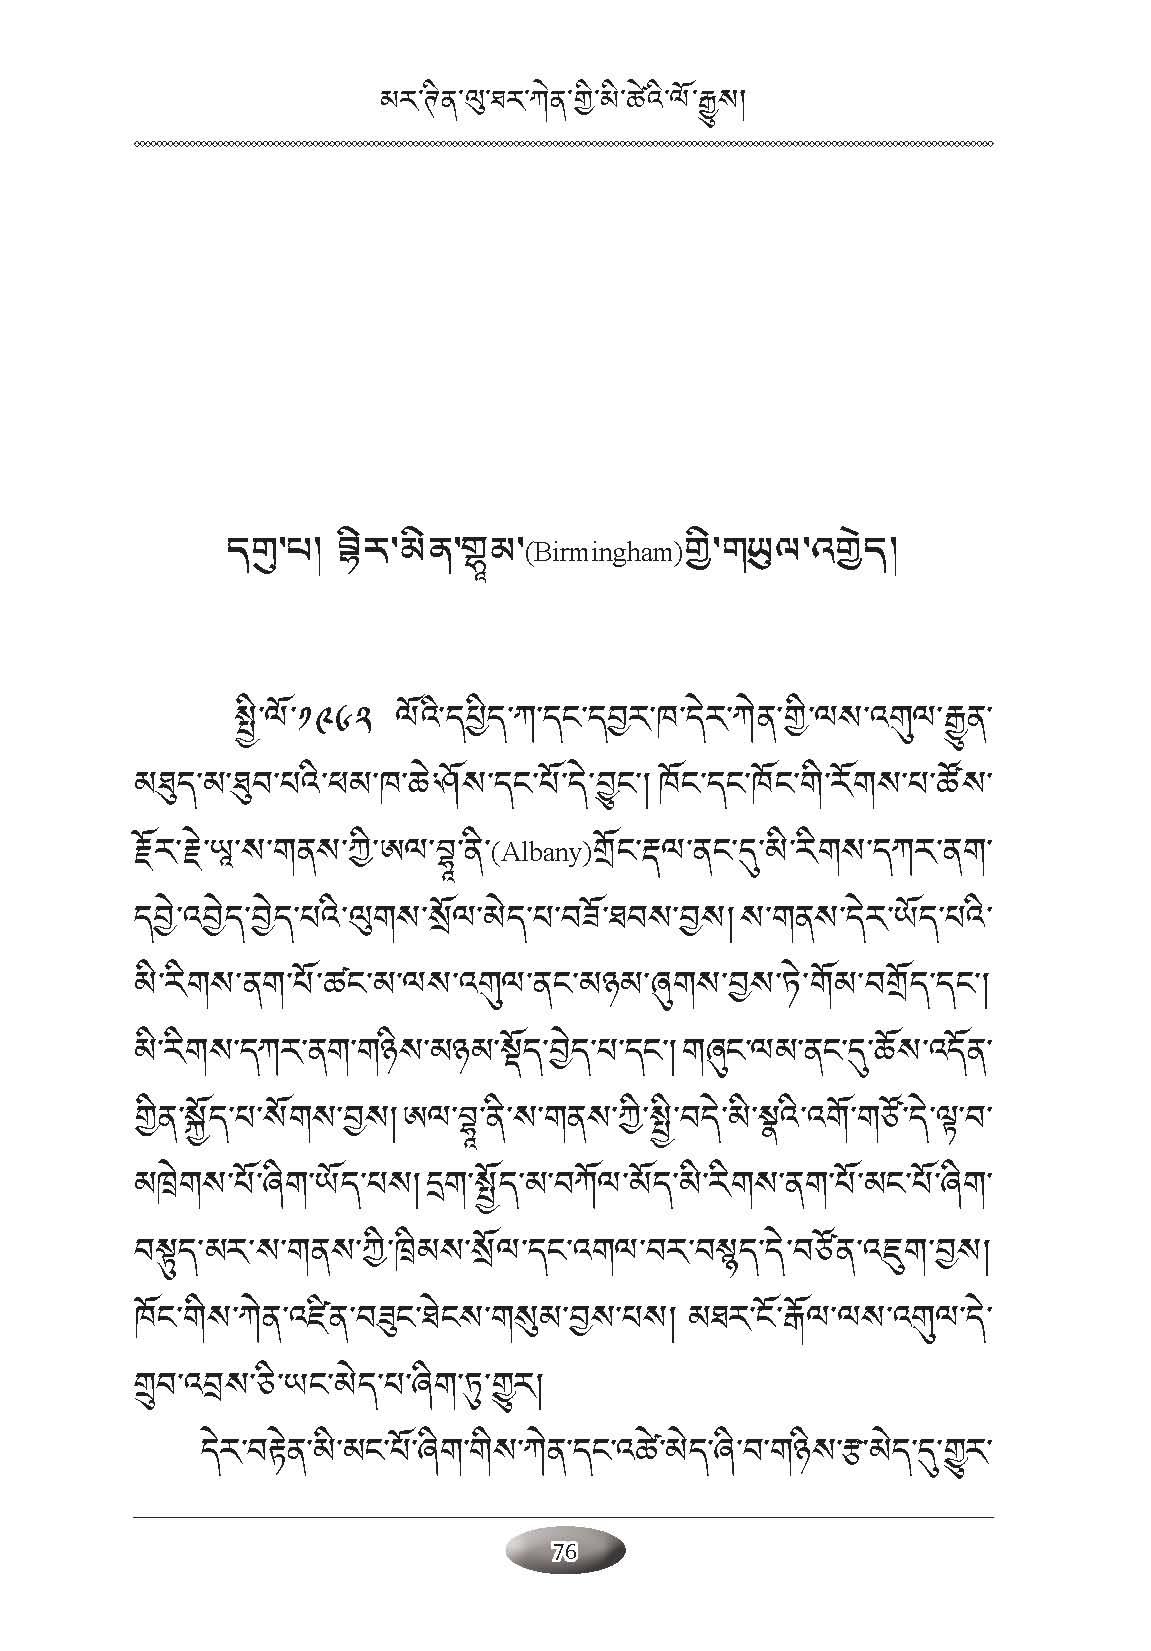 མར་ཊིན་ལུ་ཐར་ཀེན་གྱི་མི་ཚེའི་ལོ་རྒྱུས།
དགུ་པ། བྷིར་མིན་གྷཱམ་(Birmingham)གྱི་གཡུལ་འགྱེད།
སྤྱི་ལོ་༡༩༦༢ ལོའི་དཔྱིད་ཀ་དང་དབྱར་ཁ་དེར་ཀེན་གྱི་ལས་འགུལ་རྒྱུན་
མཐུད་མ་ཐུབ་པའི་ཕམ་ཁ་ཆེ་ཤོས་དང་པོ་དེ་བྱུང་། ཁོང་དང་ཁོང་གི་རོགས་པ་ཚོས་
རྗོར་རྗེ་ཡཱ་ས་གནས་ཀྱི་ཨལ་བྷཱ་ནི་(Albany)གྲོང་རྡལ་ནང་དུ་མི་རིགས་དཀར་ནག་
དབྱེ་འབྱེད་བྱེད་པའི་ལུགས་སྲོལ་མེད་པ་བཟོ་ཐབས་བྱས། ས་གནས་དེར་ཡོད་པའི་
མི་རིགས་ནག་པོ་ཚང་མ་ལས་འགུལ་ནང་མཉམ་ཞུགས་བྱས་ཏེ་གོམ་བགྲོད་དང་།
མི་རིགས་དཀར་ནག་གཉིས་མཉམ་སྡོད་བྱེད་པ་དང་། གཞུང་ལམ་ནང་དུ་ཆོས་འདོན་
གྱིན་སྐྱོད་པ་སོགས་བྱས། ཨལ་བྷཱ་ནི་ས་གནས་ཀྱི་སྤྱི་བདེ་མི་སྣའི་འགོ་གཙོ་དེ་ལྟ་བ་
མཁྲེགས་པོ་ཞིག་ཡོད་པས། དྲག་སྤྱོད་མ་བཀོལ་མོད་མི་རིགས་ནག་པོ་མང་པོ་ཞིག་
བསྟུད་མར་ས་གནས་ཀྱི་ཁྲིམས་སྲོལ་དང་འགལ་བར་བསྙད་དེ་བཙོན་འཇུག་བྱས།
ཁོང་གིས་ཀེན་འཛིན་བཟུང་ཐེངས་གསུམ་བྱས་པས། མཐར་ངོ་རྒོལ་ལས་འགུལ་དེ་
གྲུབ་འབྲས་ཅི་ཡང་མེད་པ་ཞིག་ཏུ་གྱུར།
དེར་བརྟེན་མི་མང་པོ་ཞིག་གིས་ཀེན་དང་འཚེ་མེད་ཞི་བ་གཉིས་རྩ་མེད་དུ་གྱུར་
76